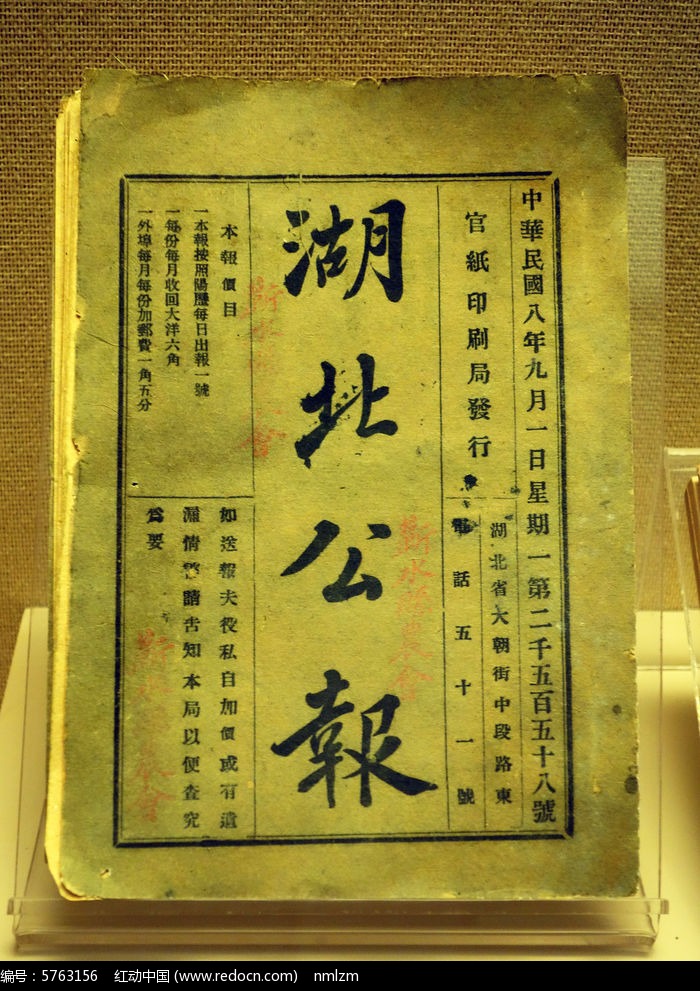 中華民國八年九月一日星期一第二千五百五十八號
官紙印刷局發行
湖北省大朝街中段路東
電話五十一號
湖北公報
本報價目
一本報按照陽曆每日出報一號
一每份每月收回大洋六角
一外埠每月每份加郵費一角五分
如送報夫役私自加價或有遺
漏情弊請告知本局以便查究
為要
编号：5763156 红动中国 (www.redocn.com) nmlzm